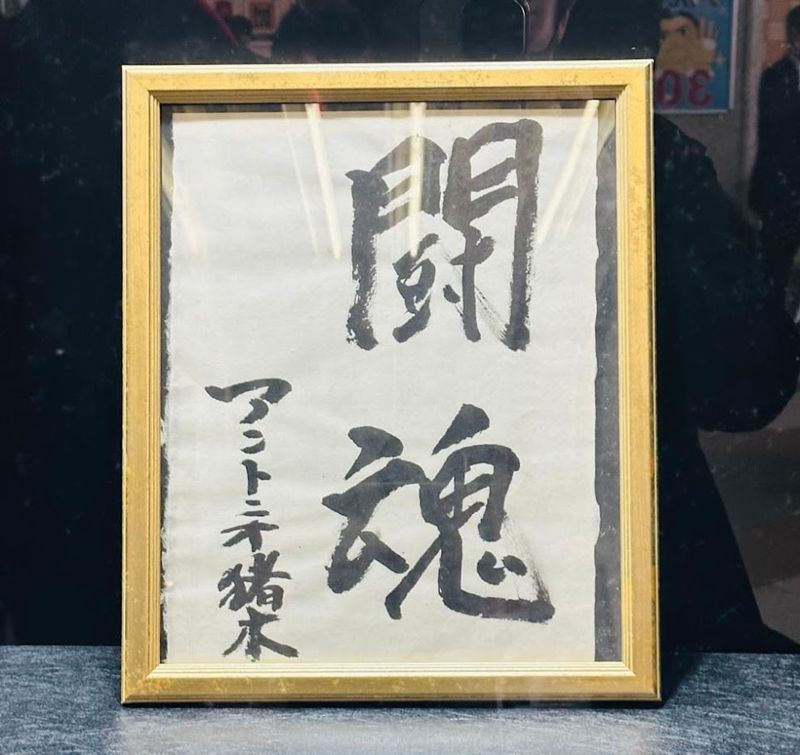 闘魂
アントニオ猪木
30